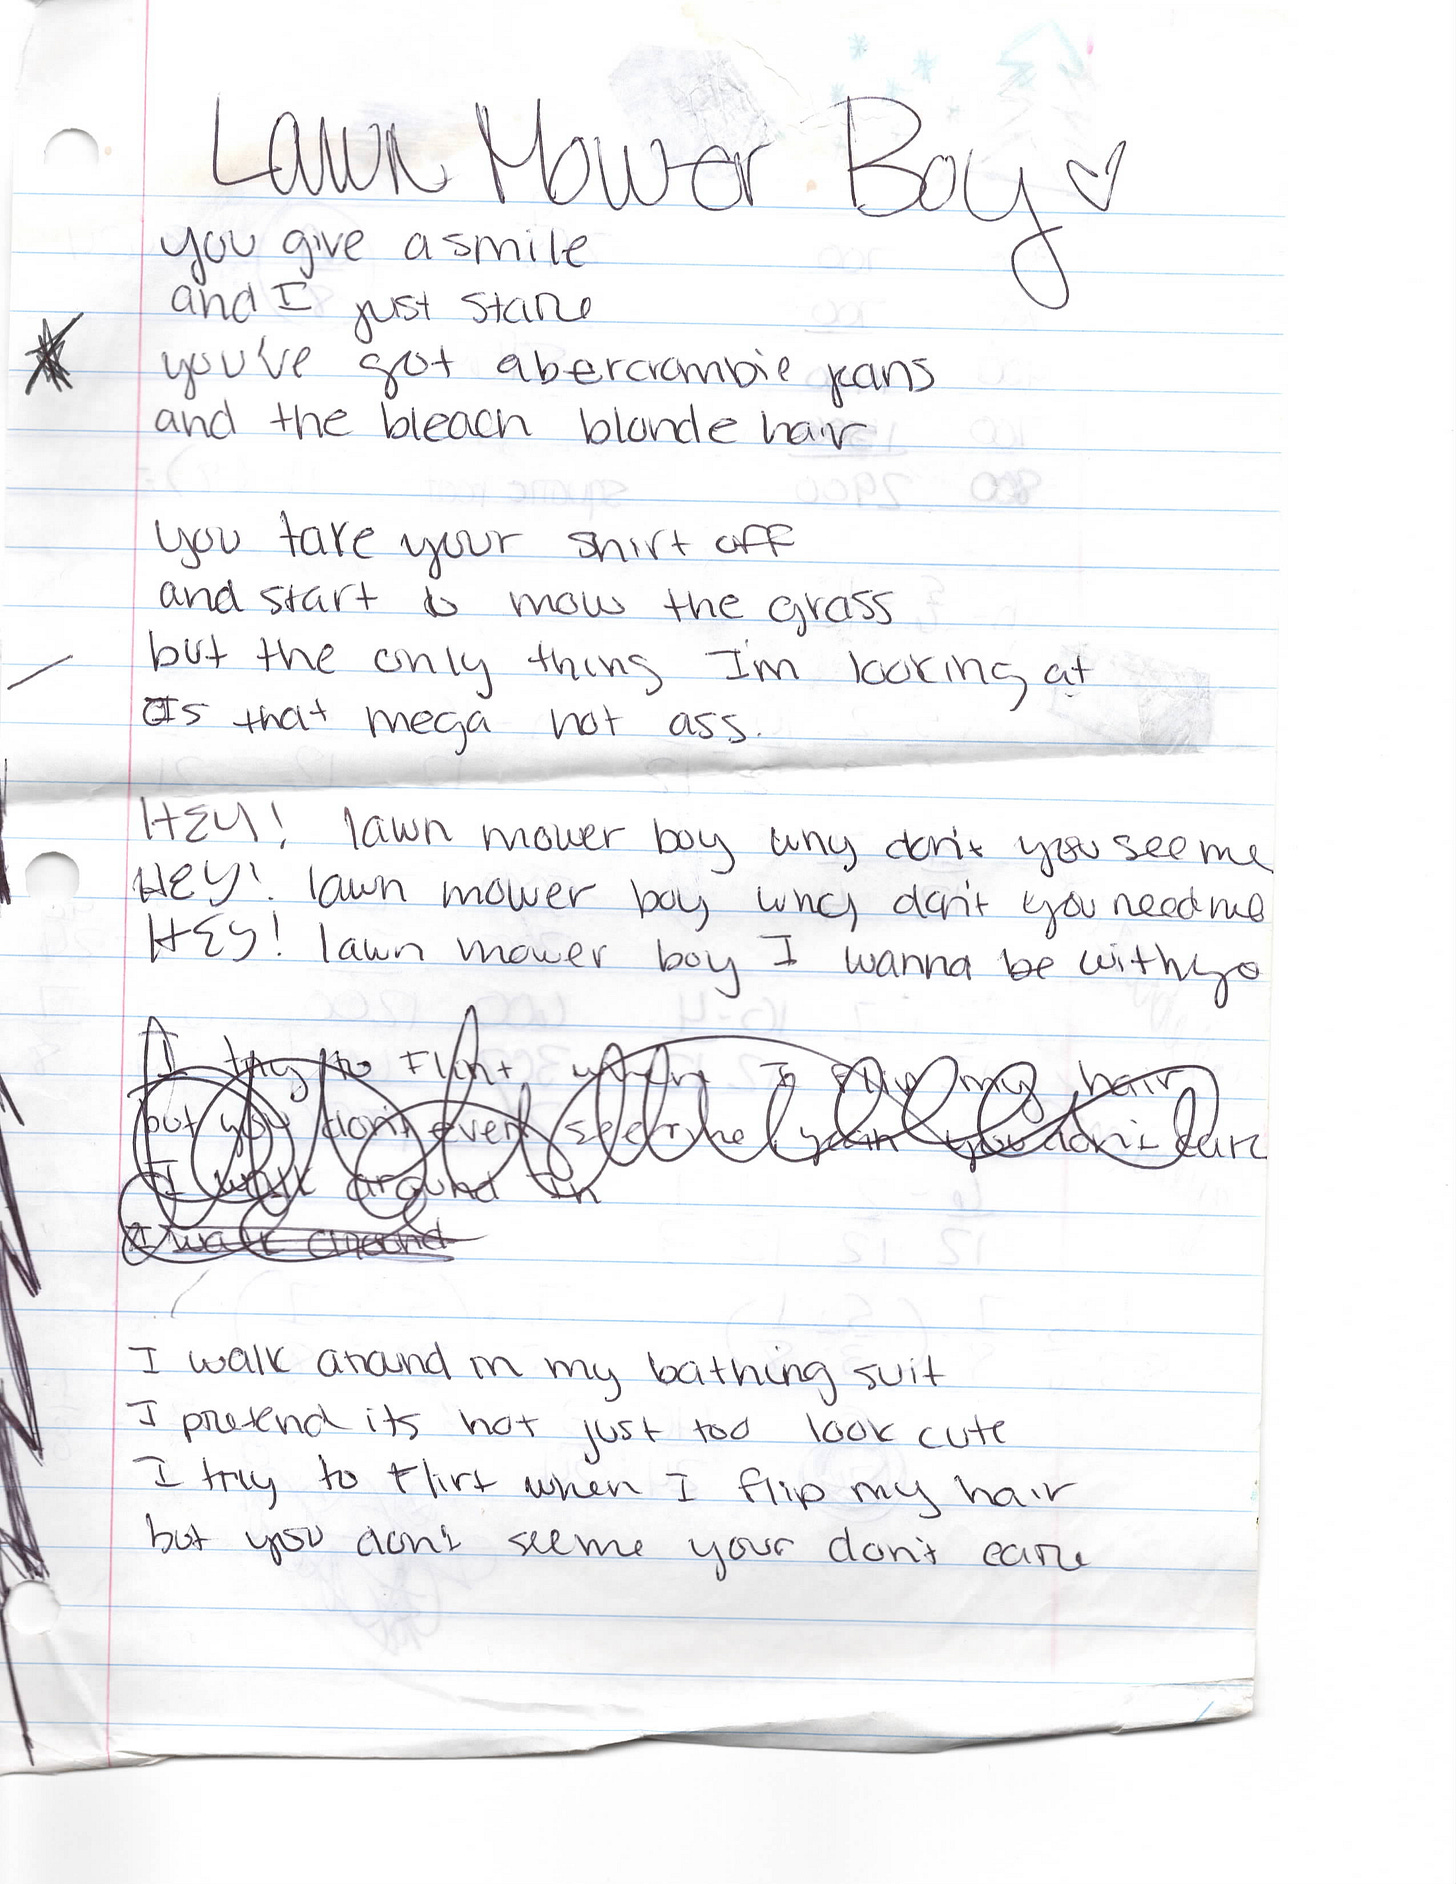 Lawn Mower Boy ♡
you give a smile
and I just stare
you've got abercrombie jeans
and the bleach blonde hair
you take your shirt off
and start to mow the grass
but the only thing I'm looking at
Is that mega hot ass.
HEY! lawn mower boy why don't you see me
HEY! lawn mower boy why don't you need me
HEY! lawn mower boy I wanna be with yo
I try to flirt when I flip my hair
but you don't even see me you don't care
I walk around in
I walk around
I walk around in my bathing suit
I pretend its hot just too look cute
I try to flirt when I flip my hair
but you don't see me your don't care